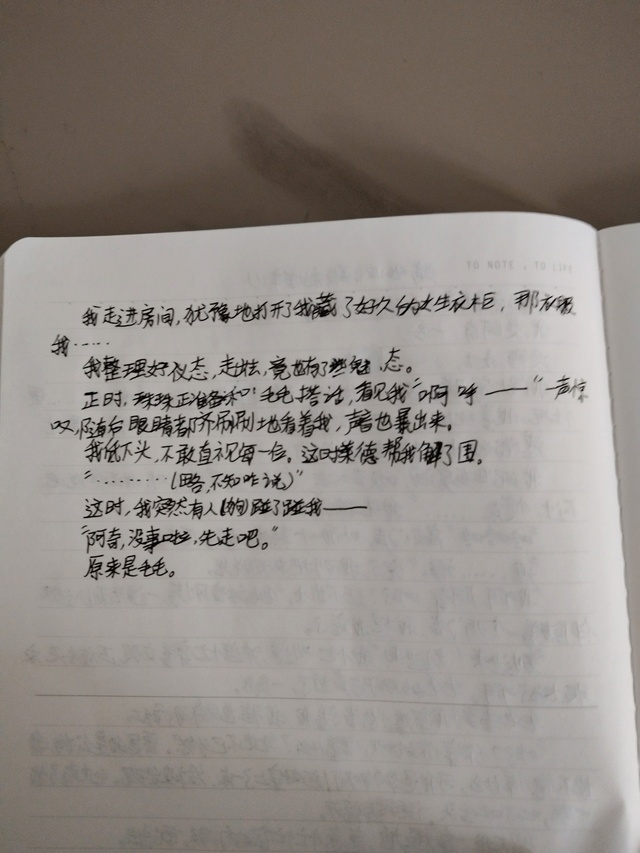 我走进房间,犹豫地打开了我藏了好久的女生衣柜,那衣服
我……
我整理好仪态,走出去,竟也有了些魅态。
正时,珠珠正准备和毛毛搭话,看见我“啊呼——”一声惊
叹,随后眼睛都齐刷刷地看着我,声音也暴出来。
我低下头,不敢直视每一位。这时莱德帮我解了围。
“………(略,不知咋说)”
这时,我突然有人(狗)碰了碰我——
“阿奇,没事啦,先走吧。”
原来是毛毛。